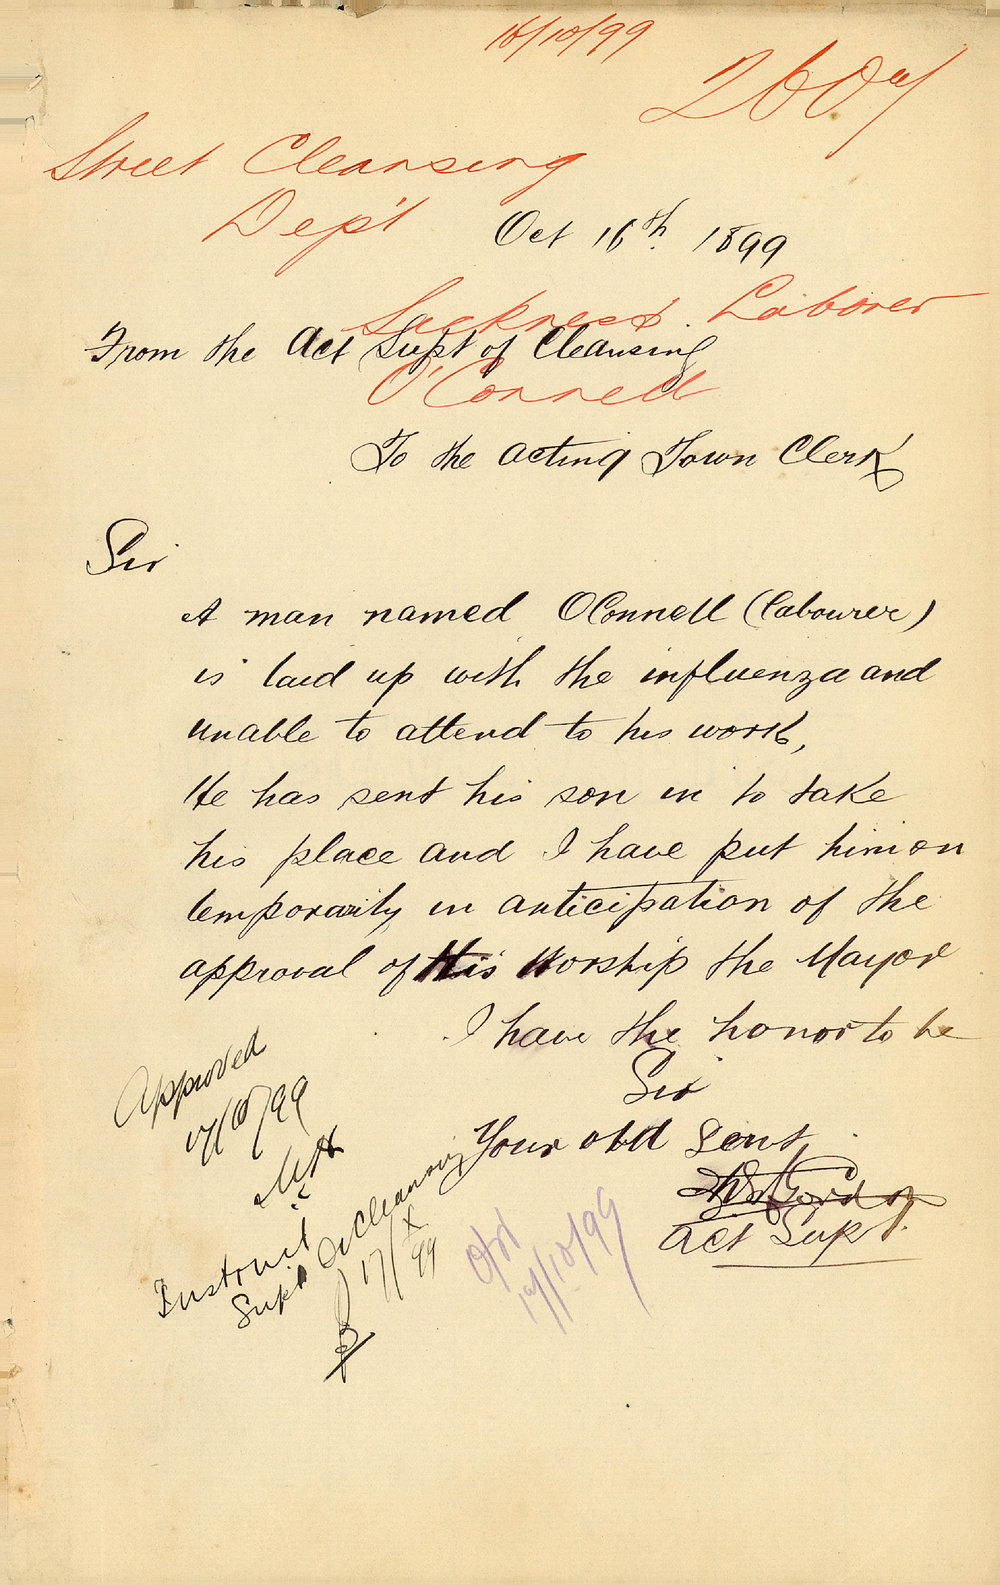 16/10/99
2609
Street Cleansing
Dep't
Oct 16th 1899
Sickness Laborer
From the Act Supt of Cleansing
O'Connell
To the Acting Town Clerk
Sir
A man named OConnell (Labourer)
is laid up with the influenza and
unable to attend to his work,
He has sent his son in to take
his place and I have put him on
temporarily in anticipation of the
approval of His Worship the Mayor
I have the honor to be
Sir
Your obdt Servt
Act Supt.
Approved
17/10/99
Instruct
Supt of Cleansing
17/X
99
19/10/99